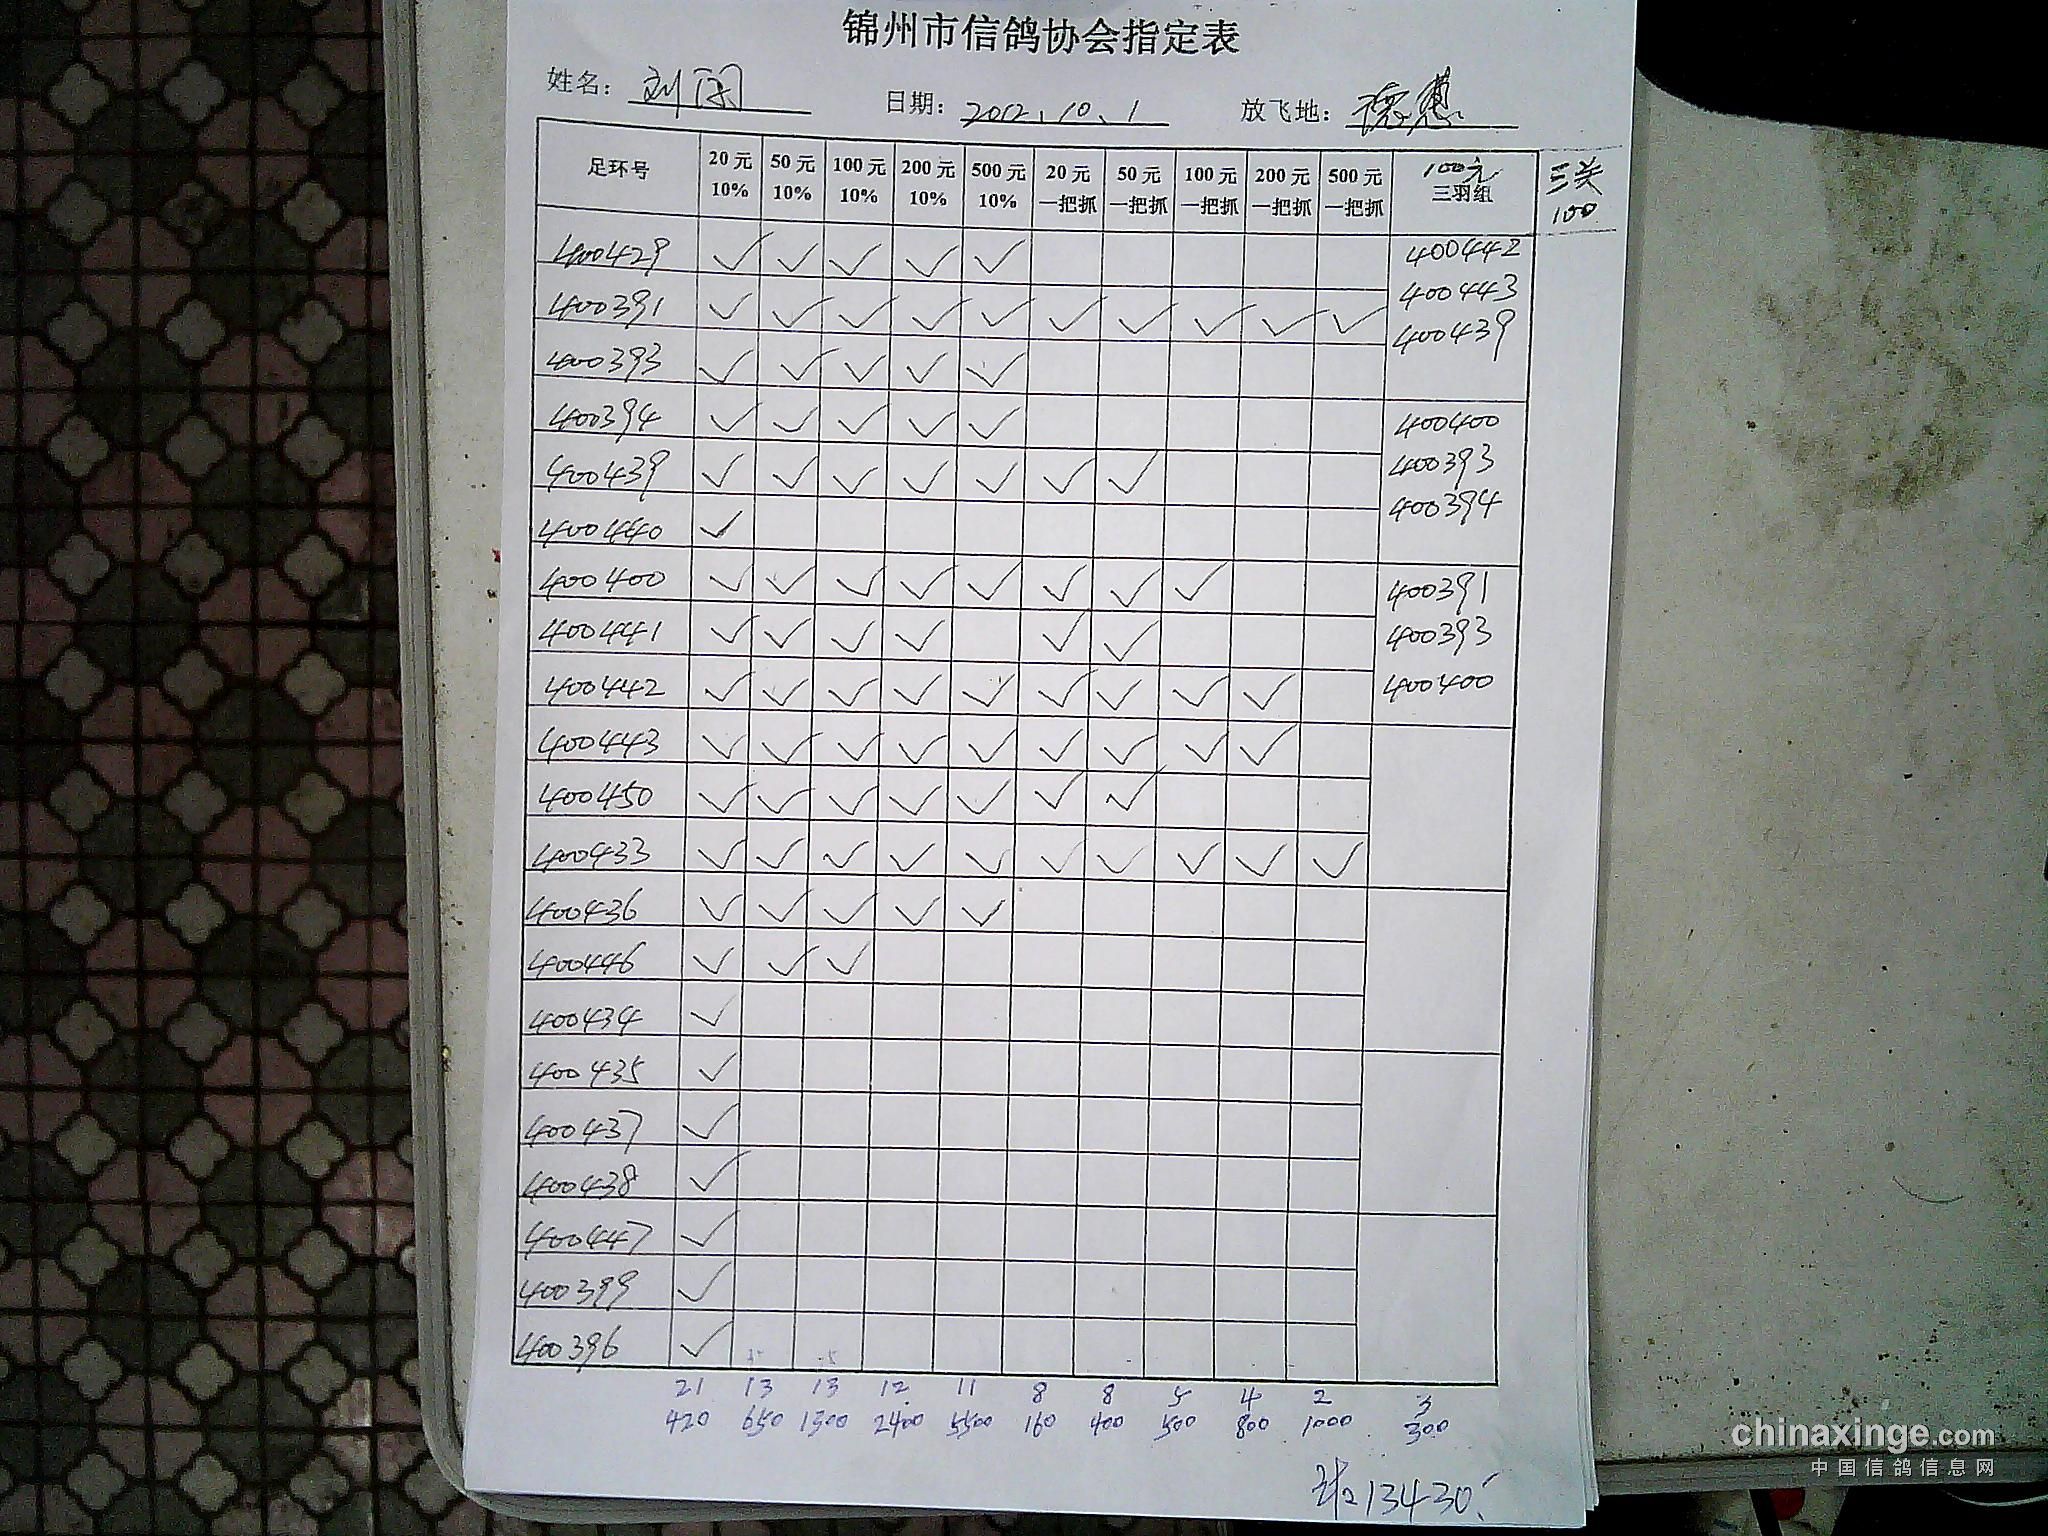 锦州市信鸽协会指定表
姓名: 刘闯 日期: 2012.10.1 放飞地: 德惠
足环号 20元 10% 50元 10% 100元 10% 200元 10% 500元 10% 20元 一把抓 50元 一把抓 100元 一把抓 200元 一把抓 500元 一把抓 100元 三羽组 三关 100
400429 ✓ ✓ ✓ ✓ ✓ 400442
400391 ✓ ✓ ✓ ✓ ✓ ✓ ✓ ✓ ✓ ✓ 400443
400393 ✓ ✓ ✓ ✓ ✓ 400439
400394 ✓ ✓ ✓ ✓ ✓ 400400
400439 ✓ ✓ ✓ ✓ ✓ ✓ ✓ 400393
400440 ✓ 400394
400400 ✓ ✓ ✓ ✓ ✓ ✓ ✓ ✓ 400391
400441 ✓ ✓ ✓ ✓ ✓ ✓ 400393
400442 ✓ ✓ ✓ ✓ ✓ ✓ ✓ ✓ ✓ 400400
400443 ✓ ✓ ✓ ✓ ✓ ✓ ✓ ✓ ✓
400450 ✓ ✓ ✓ ✓ ✓ ✓ ✓
400433 ✓ ✓ ✓ ✓ ✓ ✓ ✓ ✓ ✓ ✓
400436 ✓ ✓ ✓ ✓ ✓
400446 ✓ ✓ ✓
400434 ✓
400435 ✓
400437 ✓
400438 ✓
400447 ✓
400399 ✓
400396 ✓
21 13 13 12 11 8 8 5 4 2 3
420 650 1300 2400 5500 160 400 500 800 1000 300
13430
chinaxinge.com
中国信鸽信息网